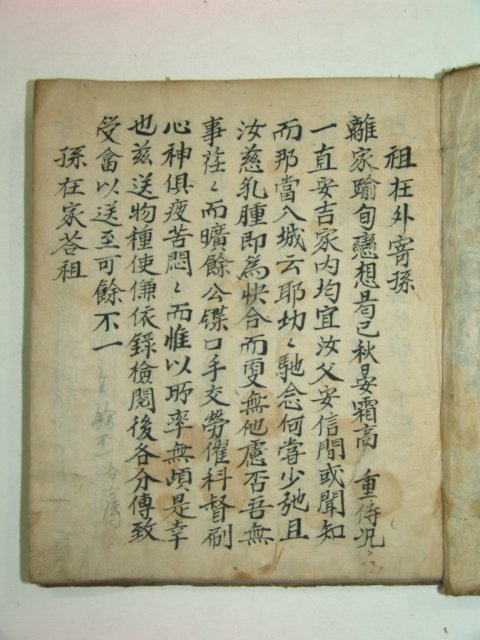 祖在外寄孫
離家踰旬戀想曷已秋晏霜高 重侍況
一直安吉家内均宜汝父安信間或聞知
而那當入城云耶劫〻馳念何嘗少弛且
汝慈乳腫即為快合而更無他慮否吾無
事莅〻而曠餘公牒口手交勞催科督刷
心神俱疲苦悶〻而惟以所率無頉是幸
也玆送物種使傔依錄檢閱後各分傳致
受畣以送至可餘不一
孫在家荅祖
餘不一